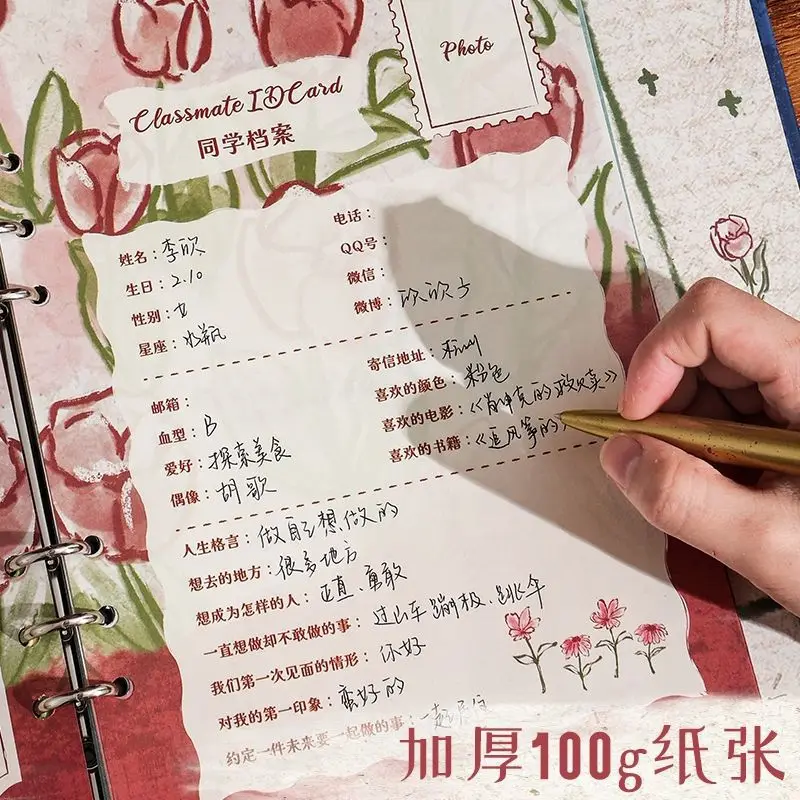 Photo
Classmate ID Card
同学档案
姓名：李欣
电话：
生日：2.10
QQ号：
性别：女
微信：
星座：水瓶
微博：欣欣子
邮箱：
寄信地址：
血型：B
喜欢的颜色：粉色
爱好：探索美食
喜欢的电影：《肖申克的救赎》
偶像：胡歌
喜欢的书籍：《追风筝的
人生格言：做自己想做的
想去的地方：很多地方
想成为怎样的人：正直、勇敢
一直想做却不敢做的事：过山车、蹦极、跳伞
我们第一次见面的情形：你好
对我的第一印象：蛮好的
约定一件未来要一起做的事：一起
加厚100g纸张